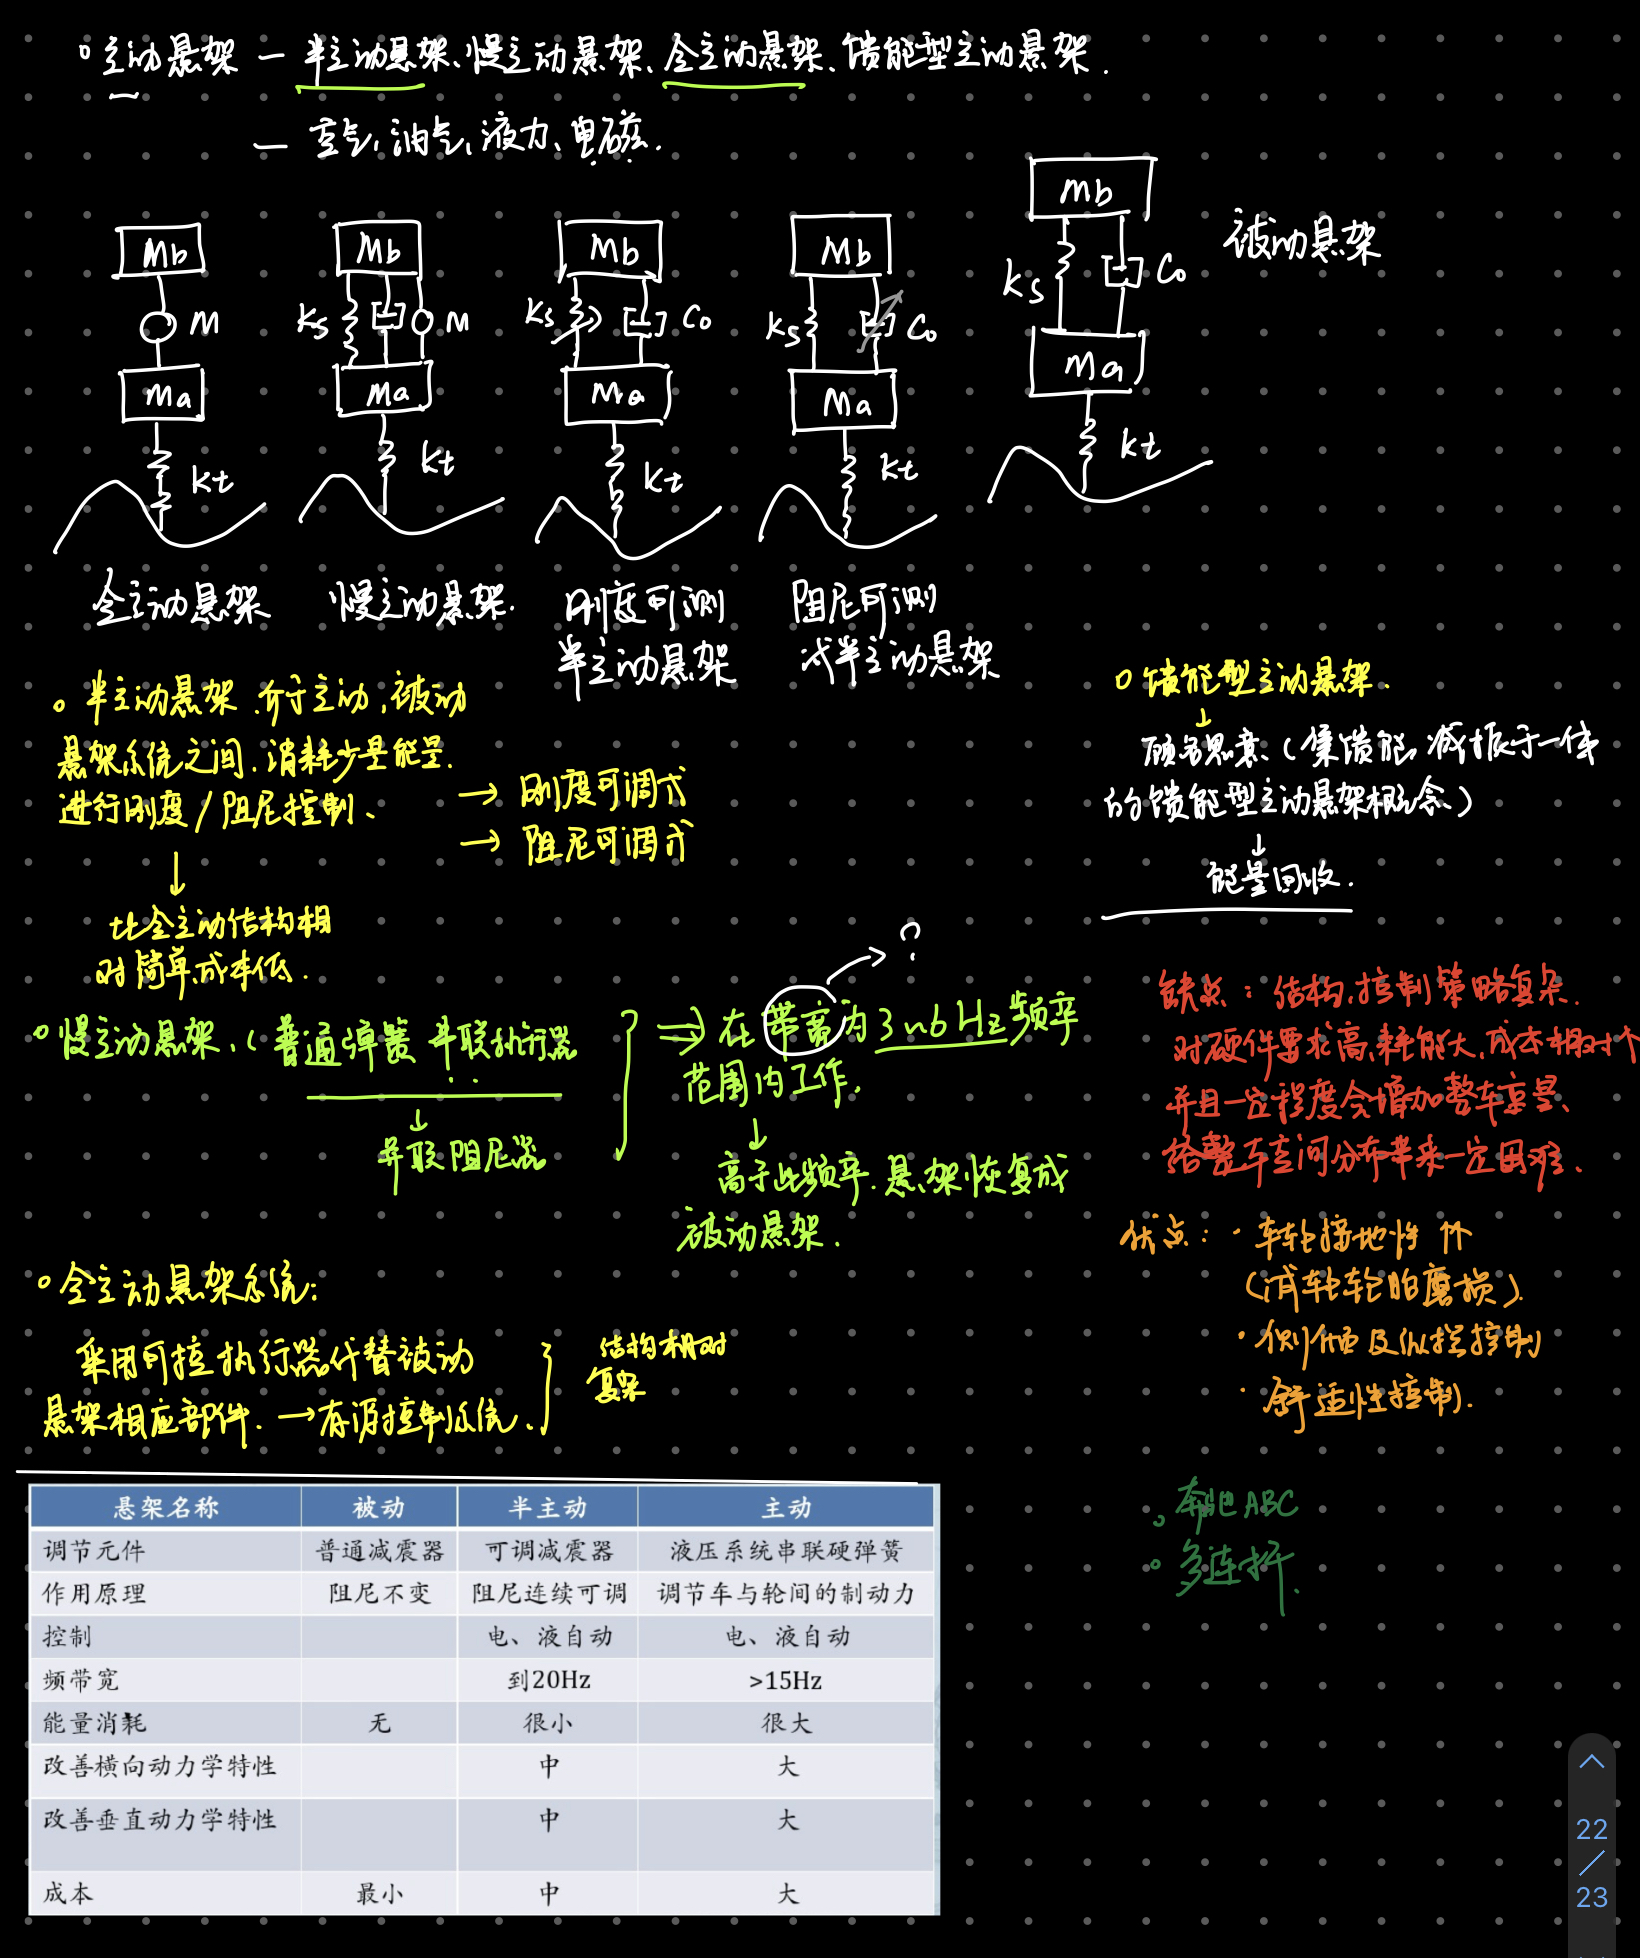 主动悬架 — 半主动悬架、慢主动悬架、全主动悬架、馈能型主动悬架.
— 空气, 油气, 液力、电磁.
Mb
M
Ma
Kt
全主动悬架
Mb
Ks
M
Ma
Kt
慢主动悬架.
Mb
Ks
Co
Ma
Kt
刚度可测
半主动悬架
Mb
Ks
Co
Ma
Kt
阻尼可测
式半主动悬架
Mb
Ks
Co
Ma
Kt
被动悬架
半主动悬架.介于主动,被动
悬架系统之间.消耗少量能量.
进行刚度/阻尼控制、
→ 刚度可调式
→ 阻尼可调式
↓
比全主动结构相
对简单,成本低.
慢主动悬架、(普通弹簧 并联执行器
↓
并联阻尼器
⇒ 在带宽为3~6Hz频率
范围内工作.
→ ?
↓
高于此频率.悬架恢复成
被动悬架.
全主动悬架系统:
采用可控执行器代替被动
悬架相应部件. →有源控制系统.
结构相对
复杂
馈能型主动悬架.
↓
顾名思意、(集馈能,减振于一体
的馈能型主动悬架概念、)
↓
能量回收.
缺点:结构,控制策略复杂.
对硬件要求高,耗能大,成本相对个
并且一定程度会增加整车质量、
给整车空间分布带来一定困难.
优点:·车轮接地性 个
(减轻轮胎磨损).
·侧倾及俯控控制
·舒适性控制.
奔驰ABC
多连杆.
悬架名称 被动 半主动 主动
调节元件 普通减震器 可调减震器 液压系统串联硬弹簧
作用原理 阻尼不变 阻尼连续可调 调节车与轮间的制动力
控制 电、液自动 电、液自动
频带宽 到20Hz >15Hz
能量消耗 无 很小 很大
改善横向动力学特性 中 大
改善垂直动力学特性 中 大
成本 最小 中 大
22
/
23